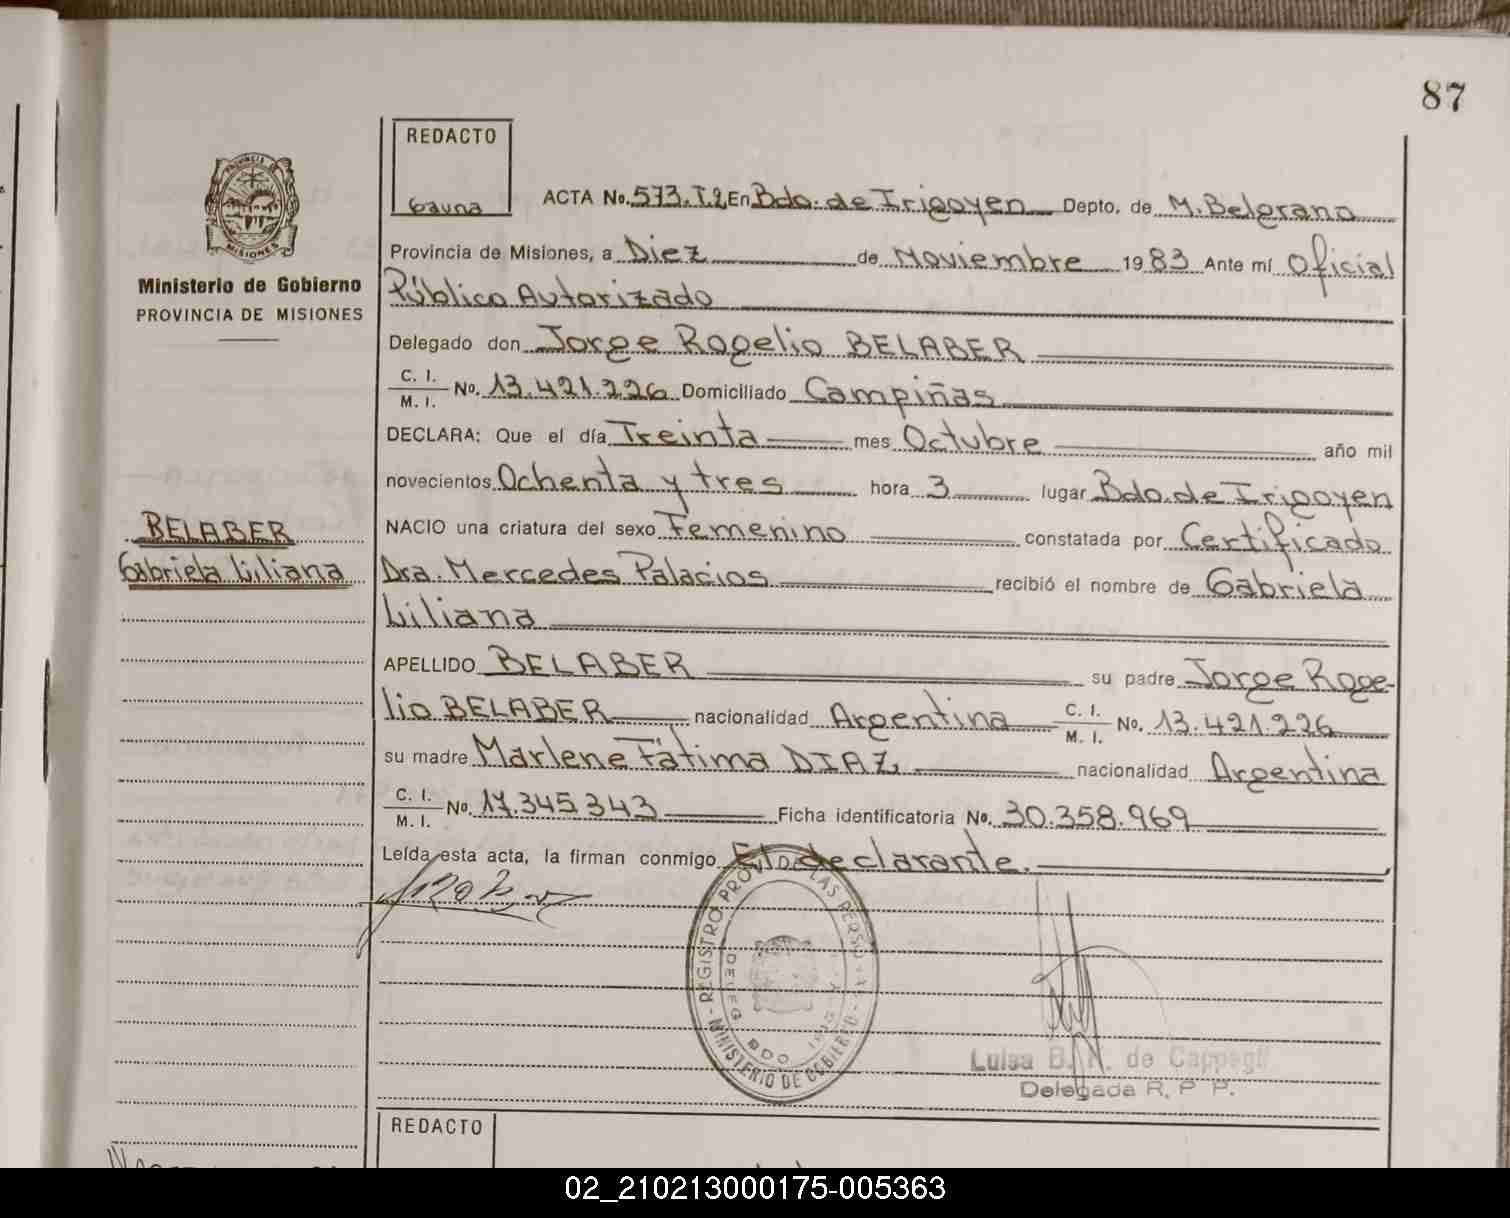 87
REDACTO
Gauna
ACTA No. 573. T.2 En Bdo. de Irigoyen Depto. de M. Belgrano
PROVINCIA DE
MISIONES
Ministerio de Gobierno
PROVINCIA DE MISIONES
Provincia de Misiones, a Diez de Noviembre 1983 Ante mí Oficial
Público Autorizado
Delegado don Jorge Rogelio BELABER
C. I.
M. I. No. 13.421.226 Domiciliado Campiñas
DECLARA: Que el día Treinta mes Octubre año mil
novecientos Ochenta y tres hora 3 lugar Bdo. de Irigoyen
NACIO una criatura del sexo Femenino constatada por Certificado
BELABER
Gabriela Liliana
Dra. Mercedes Palacios recibió el nombre de Gabriela
Liliana
APELLIDO BELABER su padre Jorge Roge-
lio BELABER nacionalidad Argentina C. I. M. I. No. 13.421.226
su madre Marlene Fátima DIAZ nacionalidad Argentina
C. I.
M. I. No. 17.345.343 Ficha identificatoria No. 30.358.969
Leída esta acta, la firman conmigo El declarante.
REGISTRO PROV. DE LAS PERSONAS
MINISTERIO DE GOBIERNO
DELEG BDO
Luisa B. de
Delegada R. P. P.
REDACTO
02_210213000175-005363